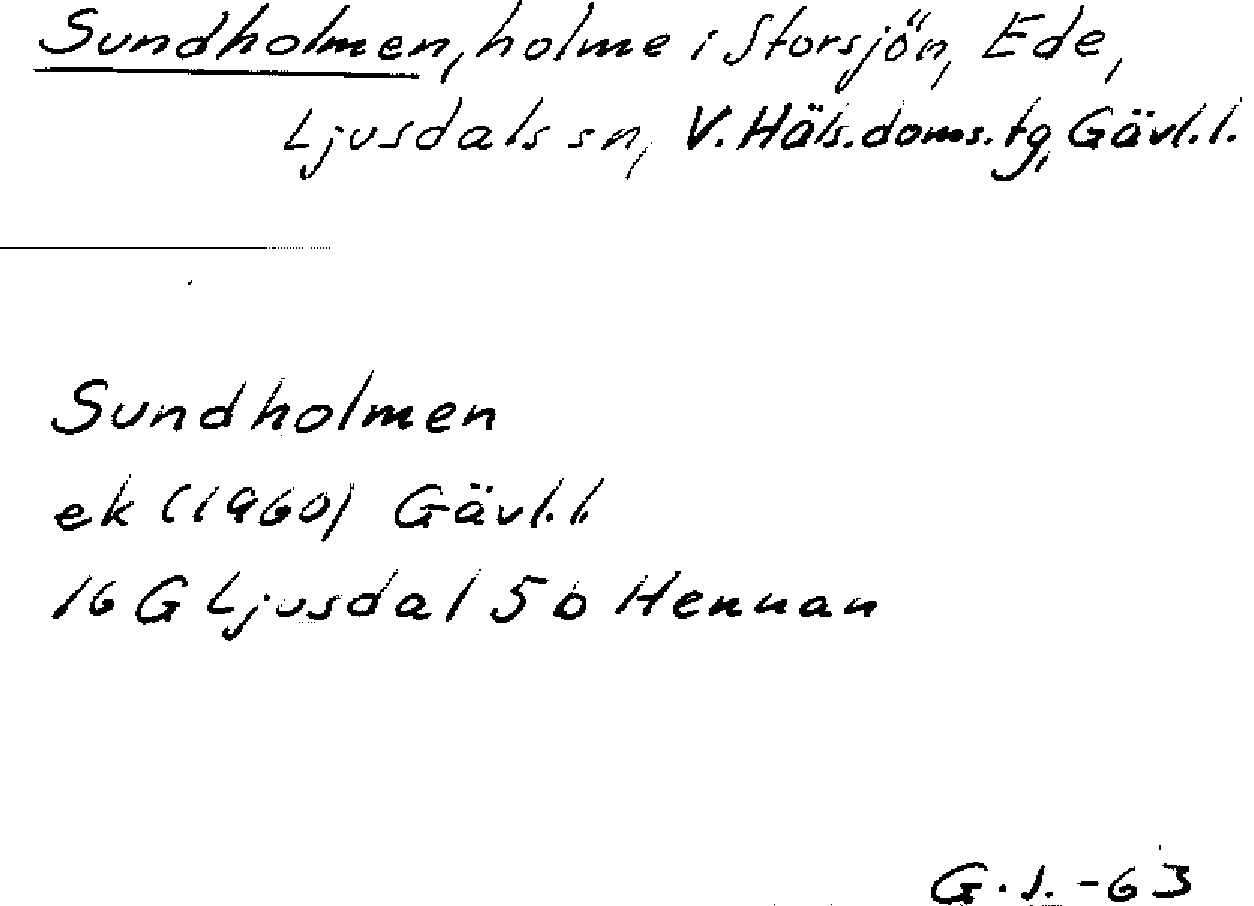 Sundholmen, holme i Storsjön, Ede,
Ljusdals sn, V. Häls. doms. tg, Gävl. l.
Sundholmen
ek (1960) Gävl. l.
16 G Ljusdal 5 b Hennan
G. J. -63